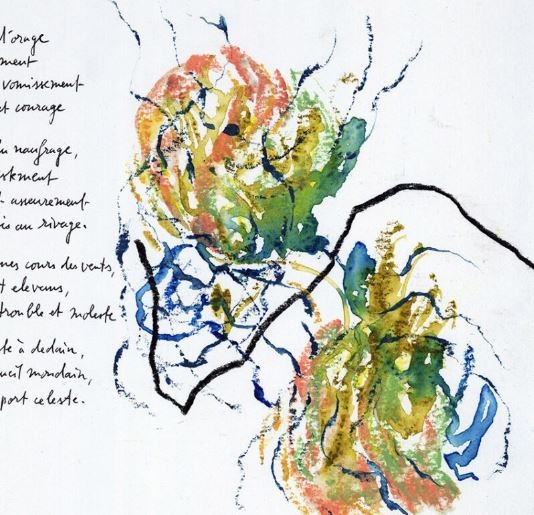 l'orage
ment
vomissement
et courage
du naufrage,
stement
asseurement
is au rivage.
mes cours des vents,
t elevens,
trouble et moleste
te à dedain,
ueil mondain,
port celeste.